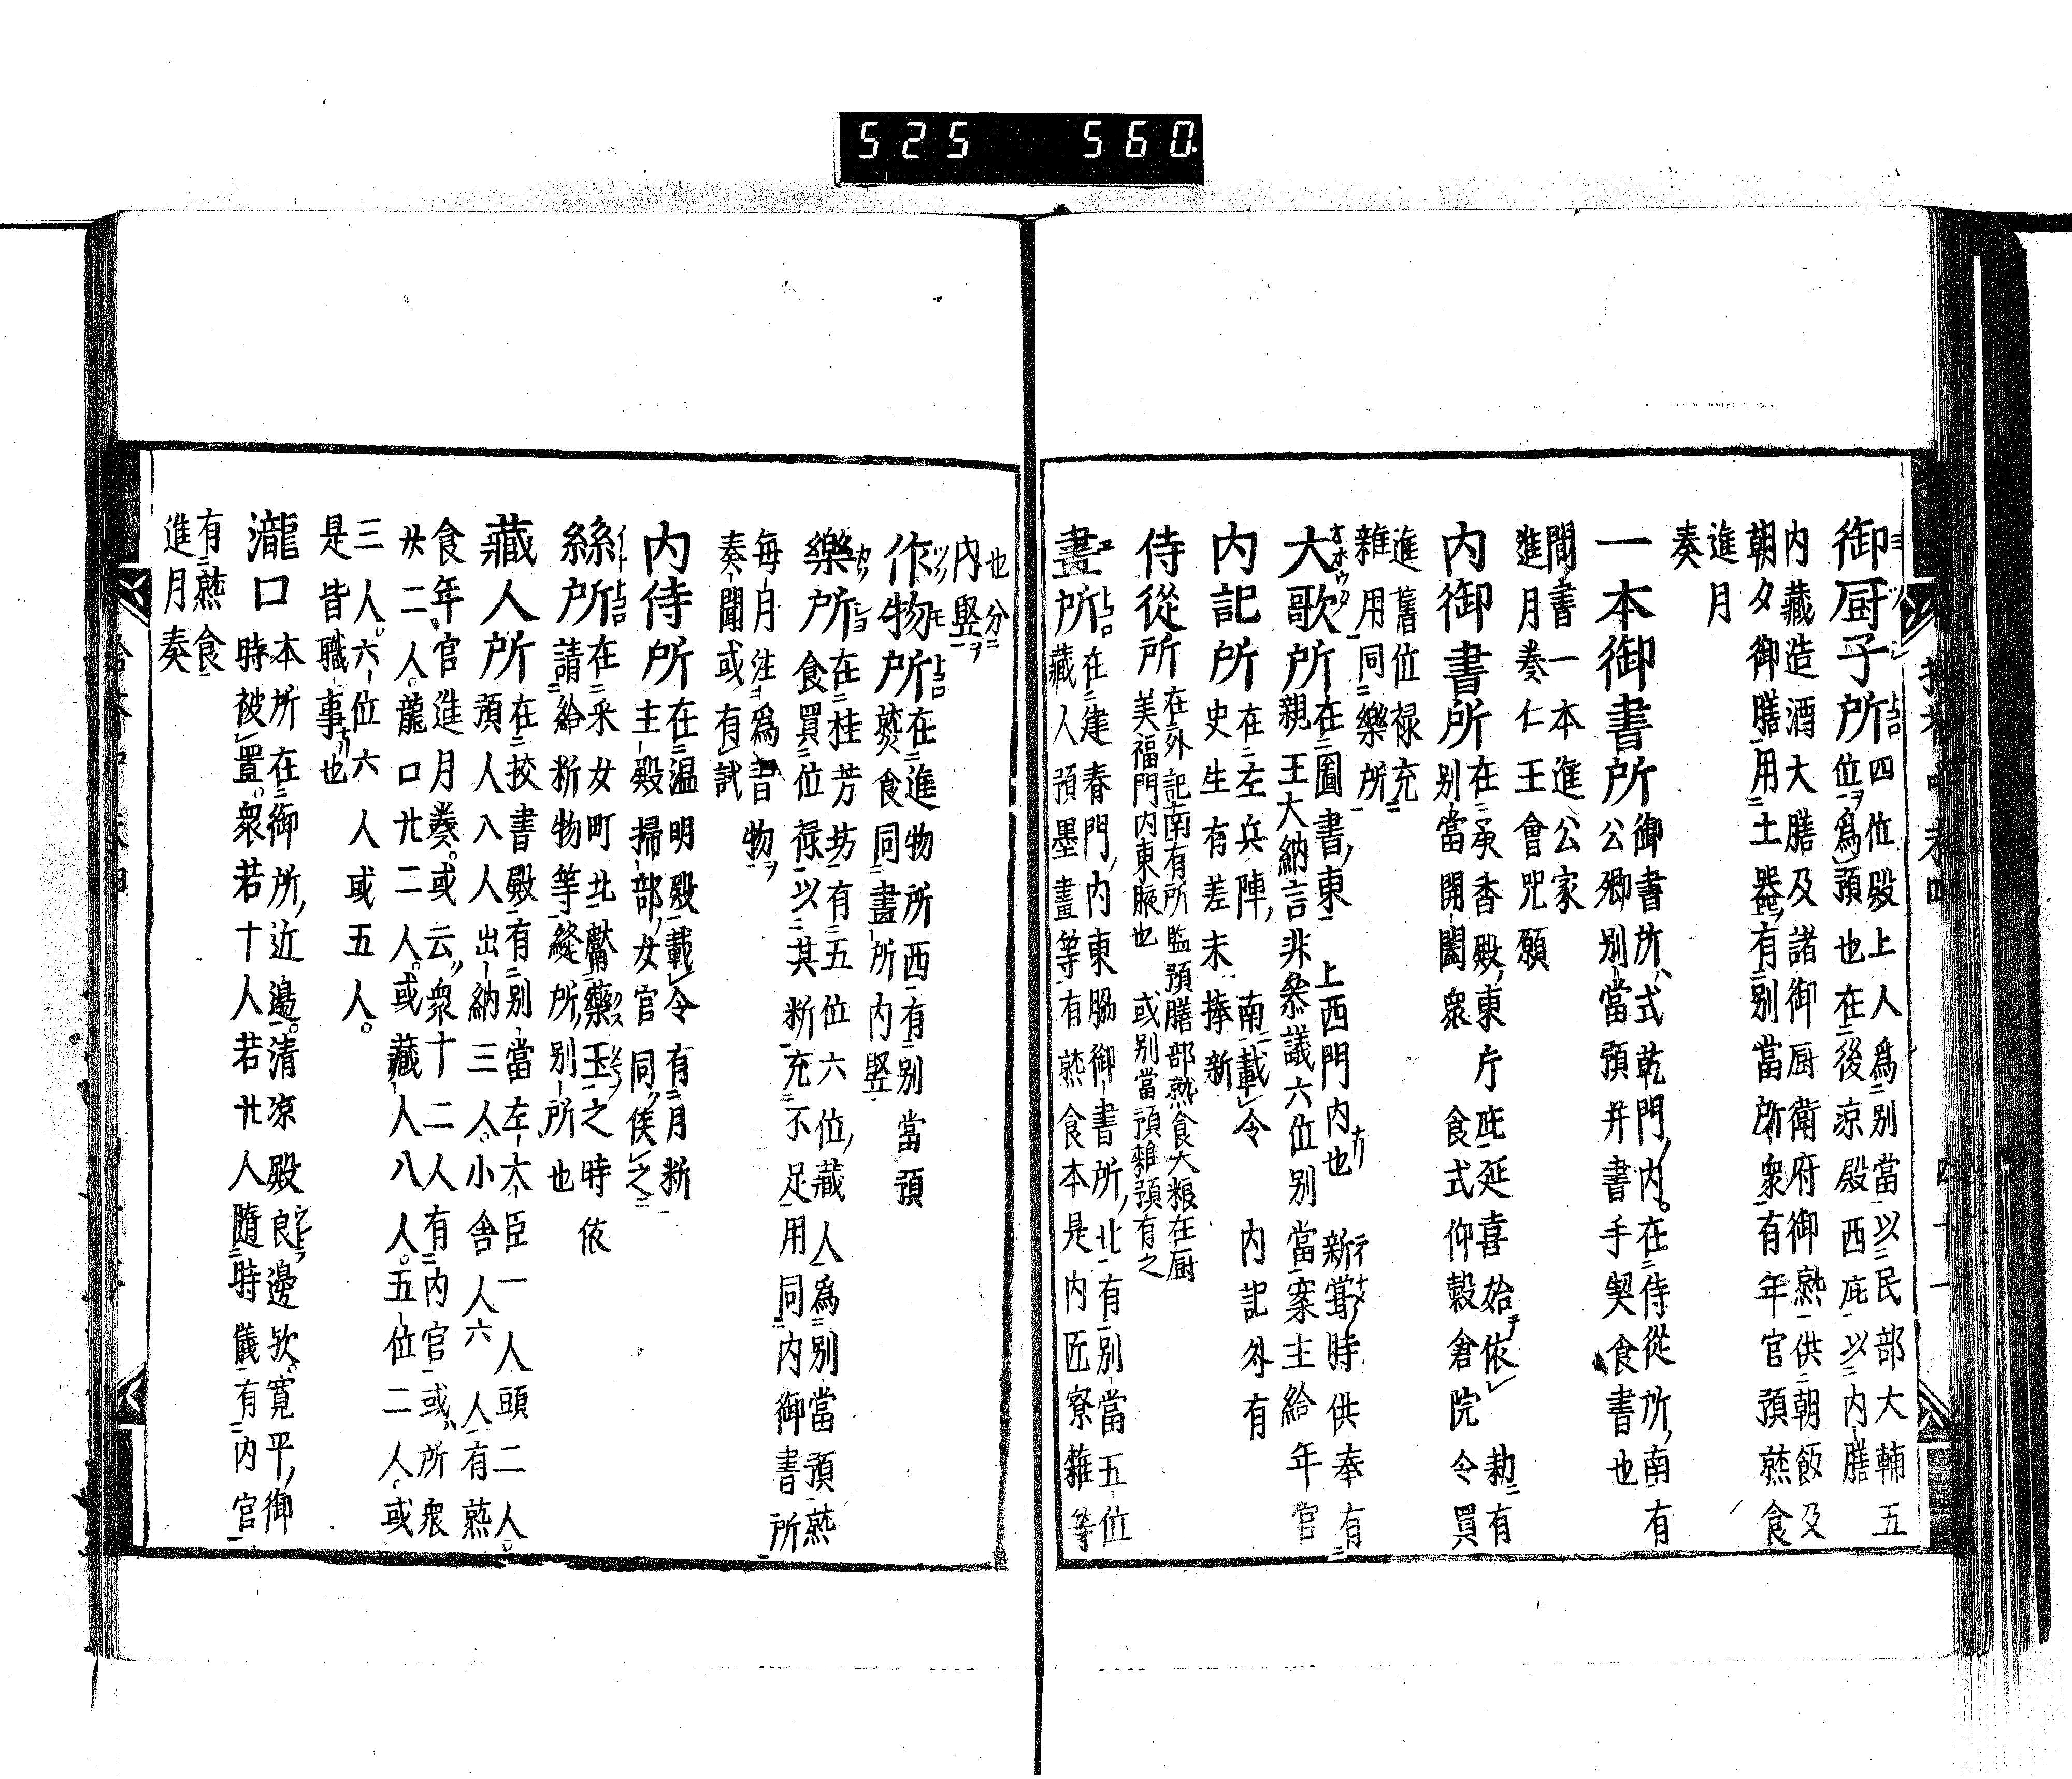 525 560.
御厨子所 四位殿上人爲別當以民部大輔五
位爲預也在後涼殿西庇以内膳
内藏造酒大膳及諸御厨衛府御熟供朝飯及
朝夕御膳用土器有別當所衆有年官預熟食
進月
奏
一本御書所 御書所式乾門内在侍從所南有
公卿別當預并書手契食書也
間書一本進公家
進月奏仁王會咒願
内御書所 在承香殿東片庇延喜始依勅有
別當開闔衆 食式仰穀倉院令買
進舊位禄充
雜用同樂所
大歌所 在圖書東 上西門内也 新嘗時供奉有
親王大納言非參議六位別當案主給年官
内記所 在左兵陣南載令 内記外有
史生有差未捧新
侍從所 在外記南有所監預膳部熟食大粮在厨
美福門内東腋也 或別當預雜預有之
畫所 在建春門内東脇御書所北有別當五位
藏人預墨畫等有熟食本是内匠寮雜等
也分
内竪
作物所 在進物所西有別當預
熟食同畫所内竪
樂所 在桂芳坊有五位六位藏人爲別當預熟
食買位禄以其料充不足用同内御書所
毎月注爲書物
奏聞或有試
内侍所 在温明殿載令有月料
主殿掃部女官同俟之
絲所 在采女町北獻藥玉之時依
請給料物等縫所別所也
藏人所 在校書殿有別當左大臣一人頭二人
預人八人出納三人小舎人六人有熟
食年官進月奏或云衆十二人有内官或所衆
廿二人瀧口廿二人或藏人八人五位二人或
三人六位六人或五人
是皆職事也
瀧口 本所在御所近邊清凉殿艮邊歟寛平御
時被置衆若十人若廿人隨時儀有内官
有熟食
進月奏